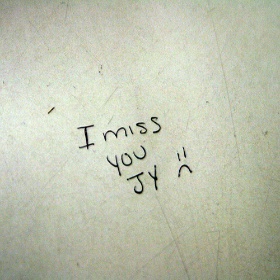 I miss
you
JY :(